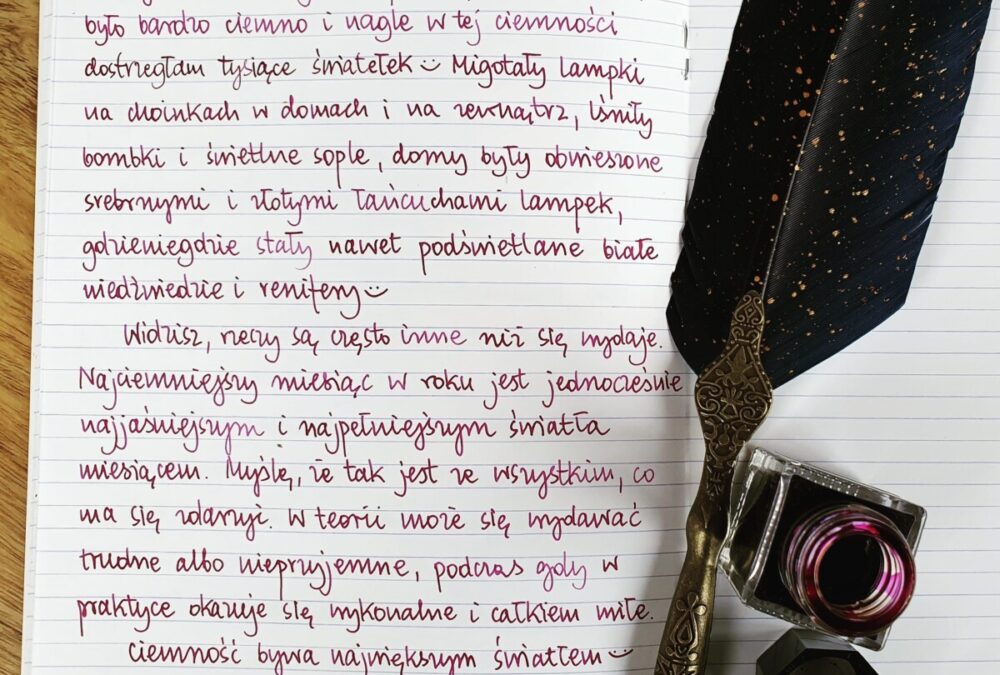 było bardzo ciemno i nagle w tej ciemności
dostrzegłam tysiące światełek ☺ Migotały lampki
na choinkach w domach i na zewnątrz, lśniły
bombki i świetlne sople, domy były obwieszone
srebrnymi i złotymi łańcuchami lampek,
gdzieniegdzie stały nawet podświetlane białe
niedźwiedzie i renifery ☺
Widzisz, rzeczy są często inne niż się wydaje.
Najciemniejszy miesiąc w roku jest jednocześnie
najjaśniejszym i najpełniejszym światła
miesiącem. Myślę, że tak jest ze wszystkim, co
ma się zdarzyć. W teorii może się wydawać
trudne albo nieprzyjemne, podczas gdy w
praktyce okazuje się wykonalne i całkiem miłe.
Ciemność bywa największym światłem ☺